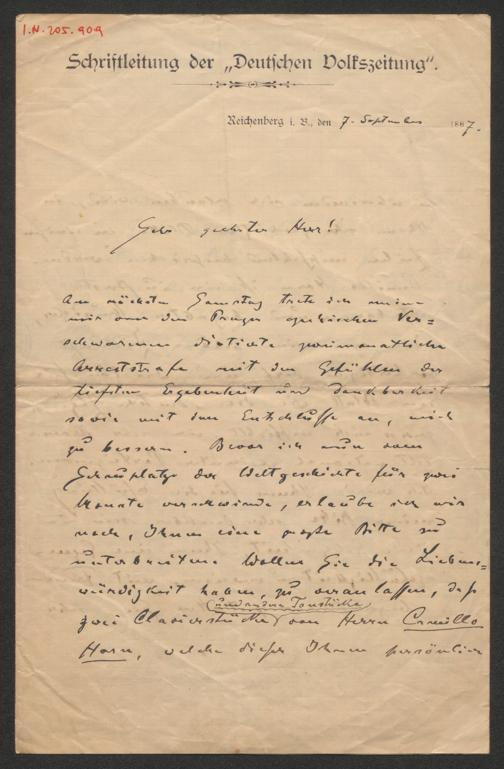 I.N. 205.909
Schriftleitung der „Deutschen Volkszeitung“.
Reichenberg i. B., den 7. September 1887.
Sehr geehrter Herr!
Am nächsten Samstag trete ich meine
mir von den Prager Ver=
schworenen diktirte zweimonatliche
Arreststrafe mit den Gefühlen der
tiefsten Ergebenheit und Dankbarkeit
sowie mit dem Entschlusse an, mich
zu bessern. Bevor ich nun vom
Schauplatze der Weltgeschichte für zwei
Monate verschwinde, erlaube ich mir
noch, Ihnen eine große Bitte zu
unterbreiten. Wollen Sie die Liebens=
würdigkeit haben, zu veranlassen, daß
(und andere Tonstücke)
zwei Clavierstücke von Herrn Camillo
Horn, welche dieser Ihnen persönlich